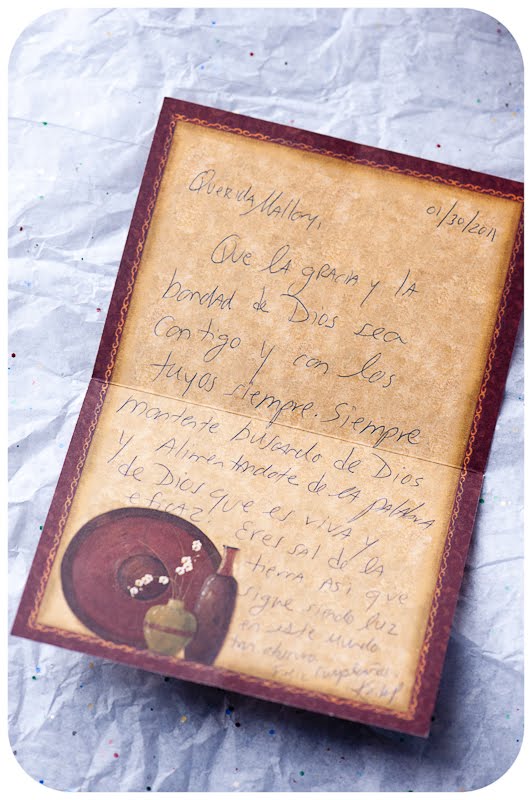 Querida Mallory,
01/30/2011
Que la gracia y la
bondad de Dios sea
contigo y con los
tuyos siempre. Siempre
mantente buscando de Dios
y Alimentandote de la palabra
de Dios que es viva y
eficaz. Eres sal de la
tierra Asi que
sigue siendo luz
en este mundo
tan obscuro.
Feliz Cumpleaños!